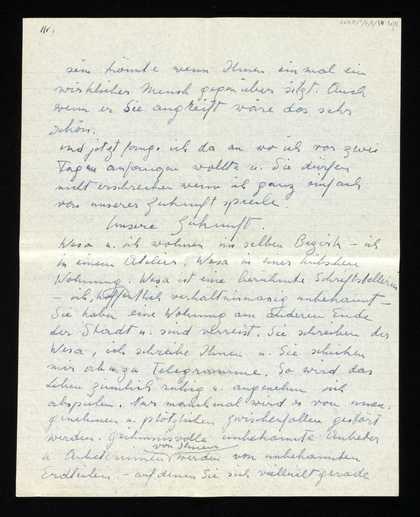 IV.
sein könnte wenn Ihnen einmal ein
wirklicher Mensch gegenüber sitzt. Auch
wenn er Sie angreift wäre das sehr
schön.
und jetzt fange ich da an wo ich vor zwei
Tagen anfangen wollte u. Sie dürfen
nicht erschrecken wenn ich ganz einfach
von unserer Zukunft spreche.
Unsere Zukunft.
Wesa u. ich wohnen im selben Bezirk – ich
in einem Atelier, Wesa in einer hübschen
Wohnung. Wesa ist eine berühmte Schriftstellerin
– ich, hoffentlich verhältnismässig unbekannt –
Sie haben eine Wohnung am anderen Ende
der Stadt u. sind verreist. Sie schreiben der
Wesa, ich schreibe Ihnen u. Sie schicken
mir Telegramme. So wird das
Leben ziemlich ruhig u. angenehm sich
abspielen. Nur manchmal wird es von unan-
genehmen u. plötzlichen Zwischenfällen gestört
werden. Geheimnisvolle unbekannte Anbeter
u. Anbeterinnen werden von unbekannten
Erdteilen – auf denen Sie sich vielleicht gerade